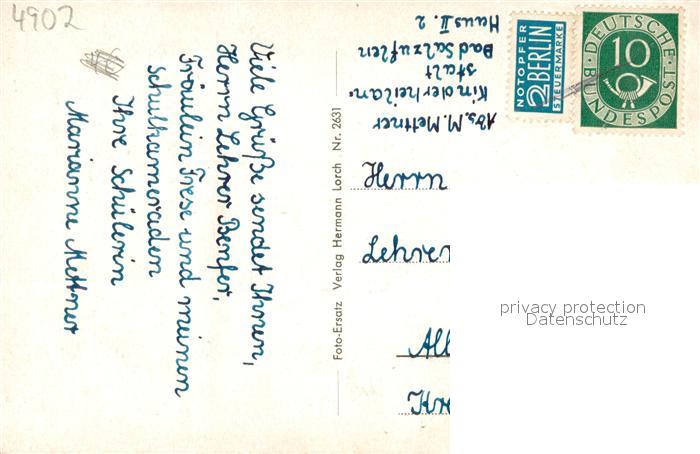 4902
Viele Grüße sendet Ihnen,
Herrn Lehrer Benfer,
Fräulein Frese und meinen
Schulkameraden
Ihre Schülerin
Marianne Mettner
Foto-Ersatz Verlag Hermann Lorch Nr. 2631
Abs. M. Mettner
Kinderheilan-
stalt
Bad Salzuflen
Haus II. 2
NOTOPFER
2 BERLIN
STEUERMARKE
DEUTSCHE
10
BUNDESPOST
Herrn
Lehrer
All
Kre
privacy protection
Datenschutz